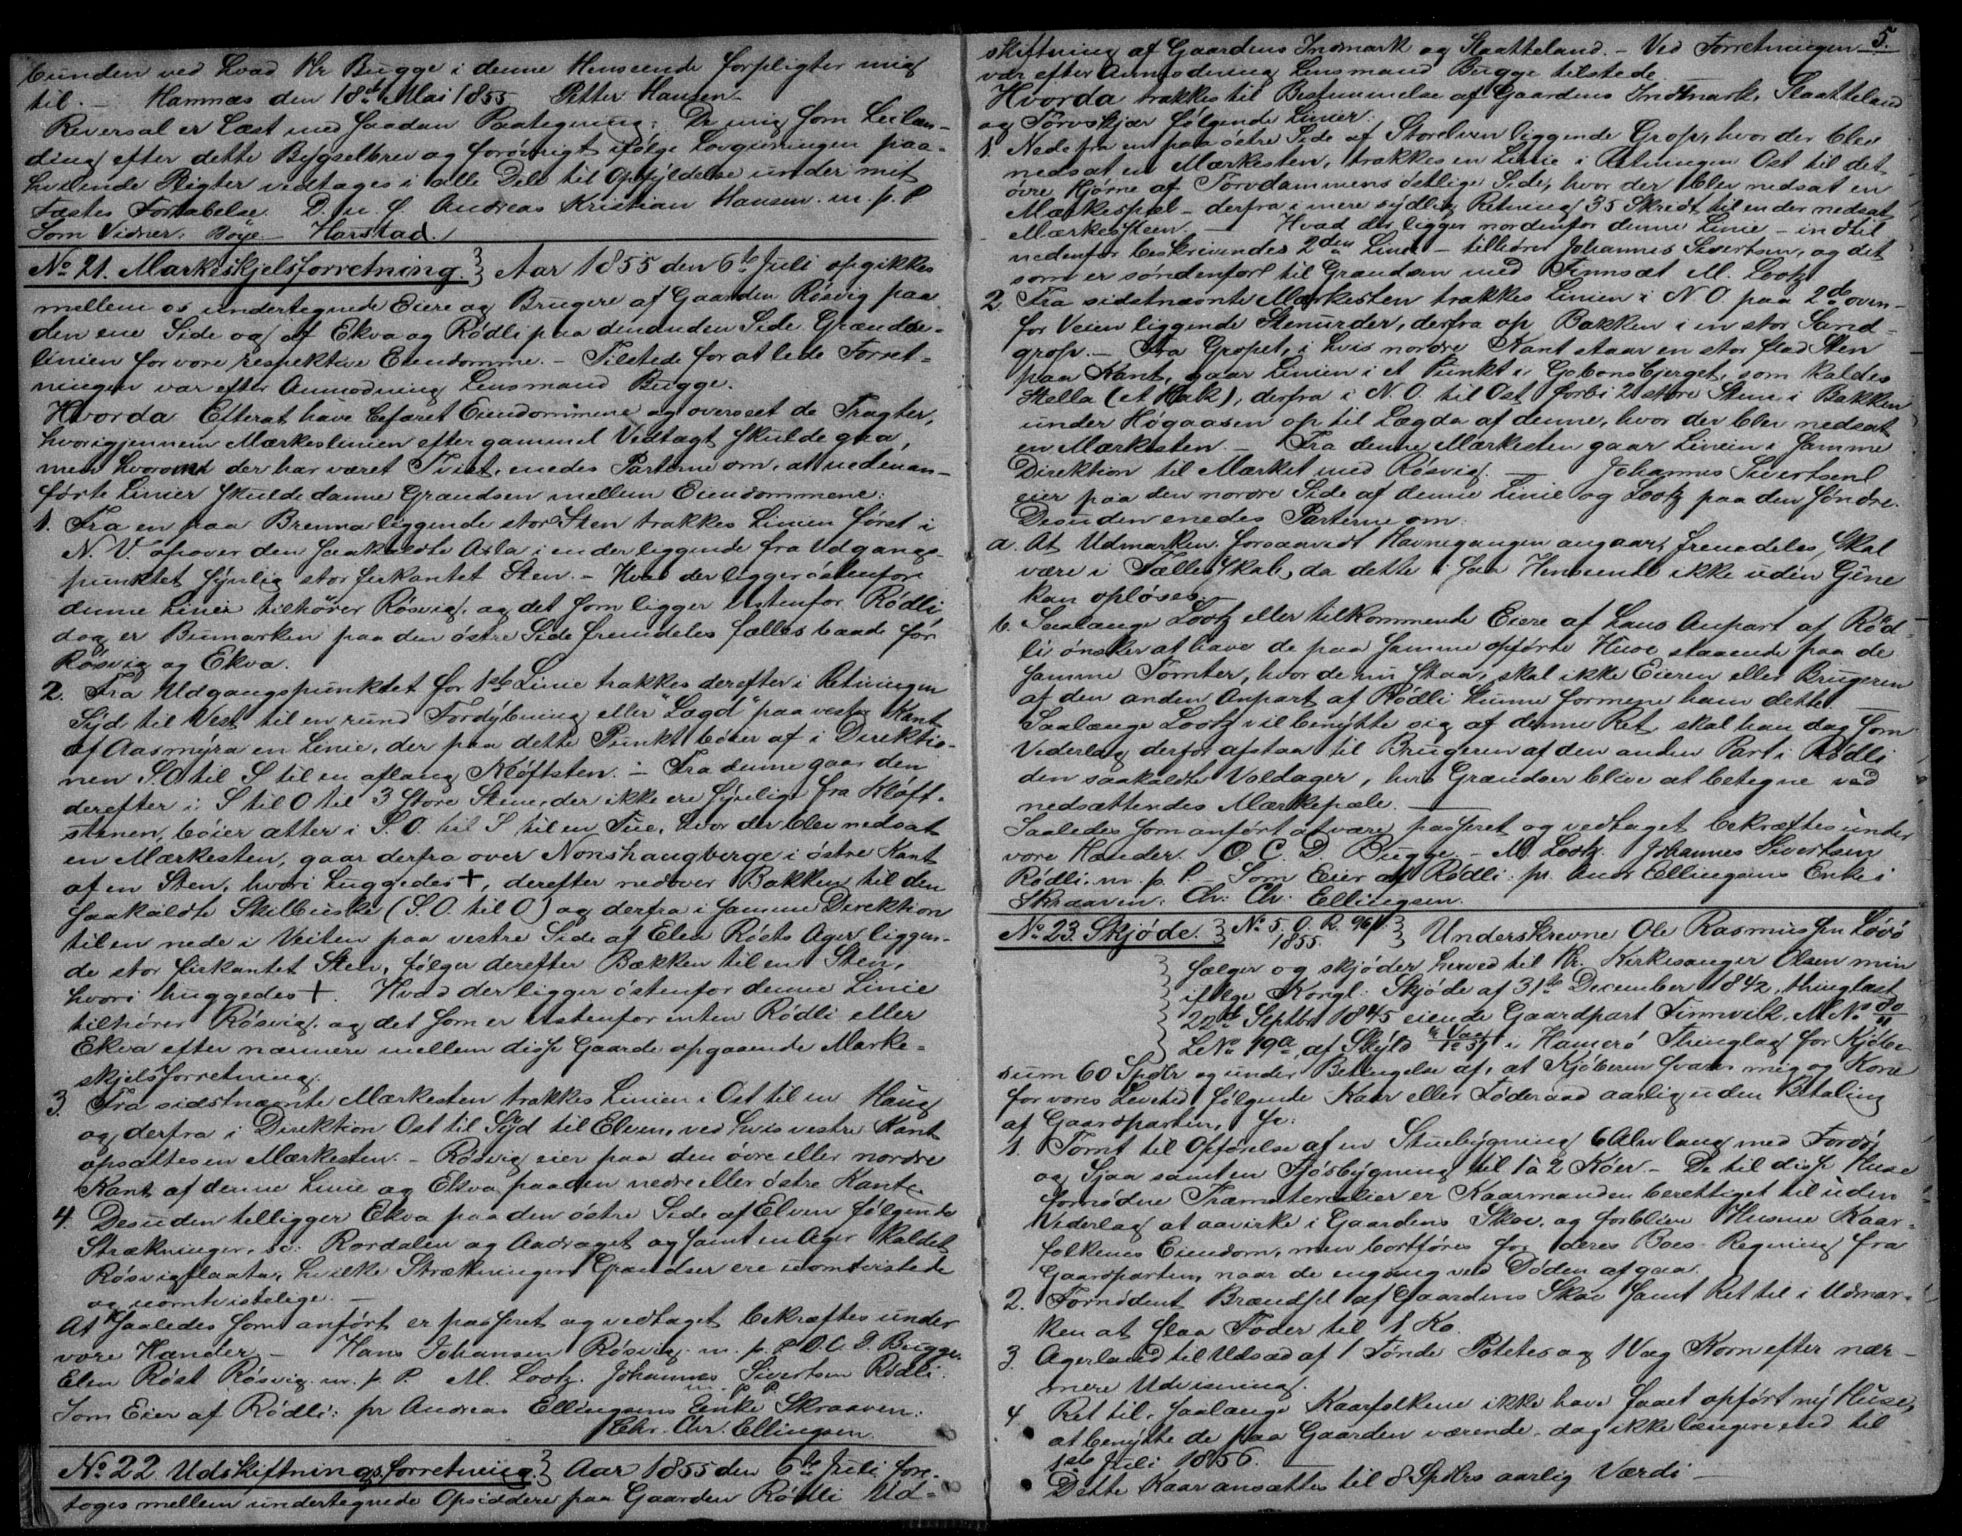 bunden ved hvad Hr Bugge i denne Henseende forpligter mig
til. — Hamnæs den 18de Mai 1855 Petter Hansen
Reversal er Læst med saadan Paategning: De mig som Leilæn-
ding efter dette Bygselbrev og forövrigt ifølge Lovgivningen paa-
hvilende Pligter vedtages i alle Dele til Opfyldelse under mit
Fæstes Fortabelse. D. u. s. Andreas Kristian Hansen m. p. P
Som Vidner. Böye Harstad.
No 21. Markeskjelsforretning. Aar 1855 den 6te Juli opgikkes
mellem os undertegnede Eiere og Brugere af Gaarden Rösvig paa
den ene Side og af Ekva og Rödli paa den anden Side Grændse-
linien for vore respektive Eiendomme. — Tilstede for at lede Forret-
ningen var efter Anmodning Lensmand Bugge.
Hvorda Efterat have befaret Eiendommene og overseet de Tragter,
hvorigjennem Mærkeslinien efter gammel Vedtægt skulde gaa,
men hvorom der har været Tvist, enedes Parterne om, at nedenan-
førte Linier skulde danne Grændsen mellem Eiendommene:
1. Fra en paa Brenna liggende stor Sten trækkes Linien först i
N. V. opover den saakaldte Asla i en der liggende fra Udgangs-
punktet synlig stor firkantet Sten. — Hvad der ligger östenfor
denne Linie tilhörer Rösvig, og det som ligger vestenfor Rödli
dog er Bumarken paa den östre Side fremdeles fælles baade for
Rösvig og Ekva.
2. Fra Udgangspunktet for 1ste Linie trækkes derefter i Retningen
Syd til Vest til en rund Fordybning eller "Lægd" paa vestre Kant
af Aasmyra en Linie, der paa dette Punkt böier af i Direktio-
nen S.O til S til en aflang Klöftsten. — Fra denne gaar den
derefter i S til O til 3 store Stene, der ikke ere synlige fra Klöft-
stenen, böier atter i S. O. til S til en Tue, hvor der blev nedsat
en Mærkesten, gaar derfra over Nonshaugberge i östre Kant
af en Sten, hvori huggedes +, derefter nedover Bakken til den
saakaldte Skilbuske (S. O. til O) og derfra i samme Direktion
til en nede i Veiten paa vestre Side af Elen Rösts Ager liggen-
de stor firkantet Sten, fölger derefter Bækken til en Sten,
hvori huggedes +. Hvad der ligger östenfor denne Linie
tilhörer Rösvig, og det som er vestenfor enten Rödli eller
Ekva efter nærmere mellem disse Gaarde opgaaende Marke-
skjelsforretning.
3. Fra sidstnævnte Mærkesten trækkes Linien i Ost til en Haug
og derfra i Direktion Ost til Syd til Elven, ved hvis vestre Kant
opsattes en Mærkesten. — Rösvig eier paa den övre eller nordre
Kant af denne Linie og Ekva paa den nedre eller östre Kant.
4. Desuden tilligger Ekva paa den östre Side af Elven fölgende
Strækninger, sc: Rördalen og Aadraget og samt en Ager kaldet
Rösvigflaata, hvilke Strækningers Grændser ere uomtvistede
og uomtvistelige. —
At saaledes som anfört er passeret og vedtaget bekræftes under
vore Hænder — Hans Johansen Rösvig m. p. P. O. C. D. Bugge.
Elen Röst Rösvig m. p. P. M. Lootz. Johannes Sivertsen Rödli
m. p. P.
Som Eier af Rödli: pr Andreas Ellingsens Enke Skraaven:
Chr. Chr. Ellingsen
No 22 Udskiftningsforretning. Aar 1855 den 6te Juli fore-
toges mellem undertegnede Opsiddere paa Gaarden Rödli Ud-
5.
skiftning af Gaardens Indmark og Slaatteland. — Ved Forretningen
var efter Anmodning Lensmand Bugge tilstede.
Hvorda trækkes til Bestemmelse af Gaardens Indmark, Slaatteland
og Törvskjær fölgende Linier:
1. Nede fra en paa östre Side af Storelven liggende Grop, hvor der blev
nedsat en Mærkesten, trækkes en Linie i Retningen Ost til det
övre Hjörne af Torvdammens östlige Side, hvor der blev nedsat en
Mærkespæl — derfra i mere sydlig Retning 35 Skridt til en der nedsat
Mærkesteen. — Hvad der ligger nordenfor denne Linie — indtil
nedenfor beskrivendes 2den Linie — tilhörer Johannes Sivertsen, og det
som er söndenfor til Grændsen med Finnsæt M. Lootz
2. Fra sidstnævnte Mærkesten trækkes Linien i N O. paa 2de oven-
for Veien liggende Stenurder, derfra op Bakken i en stor Sand-
grop. — Fra Gropet, i hvis nordre Kant staar en stor flad Sten
paa Kant, gaar Linien i et Punkt i Gobonsbjerget, som kaldes
Stella (et Hak), derfra i N. O. til Ost forbi 2 store Stene i Bakken
under Högaasen op til Lægda af denne, hvor der blev nedsat
en Mærkesten. — Fra denne Mærkesten gaar Linien i samme
Direktion til Mærket med Rösvig. — Johannes Sivertsen
eier paa den nordre Side af denne Linie og Lootz paa den söndre.
Desuden enedes Parterne om:
a. At Udmarken forsaavidt Havnegangen angaar, fremdeles skal
være i Fællesskab, da dette i saa Henseende ikke uden Gene
kan oplöses. —
b. Saalænge Lootz eller tilkommende Eiere af hans Anpart af Röd-
li önsker at have de paa samme opförte Huse staaende paa de
samme Tomter, hvor de nu staa, skal ikke Eieren eller Brugeren
af den anden Anpart af Rödli kunne formene ham dette.
Saalænge Lootz vil benytte sig af denne Ret, skal han dog som
Vederlag derfor afstaa til Brugeren af den anden Part i Rödli
den saakaldte Voldager, hvis Grændser blive at betegne ved
nedsættendes Mærkepæle. —
Saaledes som anfört at være passeret og vedtaget bekræftes under
vore Hænder. O. C. D Bugge — M Lootz. Johannes Sivertsen
Rödli m. p. P. — Som Eier af Rödli pr. Andr Ellingsens Enke i
Skraaven: Chr. Chr. Ellingsen.
No 23. Skjöde. No 5. O. R. 96/1 1855. Underskrevne Ole Rasmussen Lövö
sælger og skjöder herved til Hr. Kirkesanger Olsen min
ifölge Kongl. Skjöde af 31te December 1842, thinglæst
22de Septbr 1845 eiende Gaardpart Finnvik, M No 80/11
LNo 19a, af Skyld i Hamerö Thinglag for Kjöbe-
sum 60 Spdlr og under Betingelse af, at Kjöberen svarer mig og Kone
for vores Levetid fölgende Kaar eller Föderaad aarlig uden Betaling
af Gaardparten, sc:
1. Tomt til Opförelse af en Stuebygning 6 Alen lang med Forvö
og Sjaa samt en Fjösbygning til 1 à 2 Köer. — De til disse Huse
fornödne Træmaterialier er Kaarmanden berettiget til uden
Vederlag at aavirke i Gaardens Skov, og forblive Husene Kaar-
folkenes Eiendom, men bortföres for deres Boes Regning fra
Gaardparten, naar de engang ved Döden afgaa.
2. Fornödent Brændsel af Gaardens Skov samt Ret til i Udmar-
ken at slaa Foder til 1 Ko.
3. Agerland til Udsæd af 1 Tönde Potetes og 1 Vog Korn efter nær-
mere Udvisning.
4. Ret til, saalænge Kaarfolkene ikke have faaet opfört nye Huse,
at benytte de paa Gaarden værende, dog ikke længere end til
1ste Juli 1856. —
Dette Kaar ansættes til 8 Spdlrs aarlig Værdi —